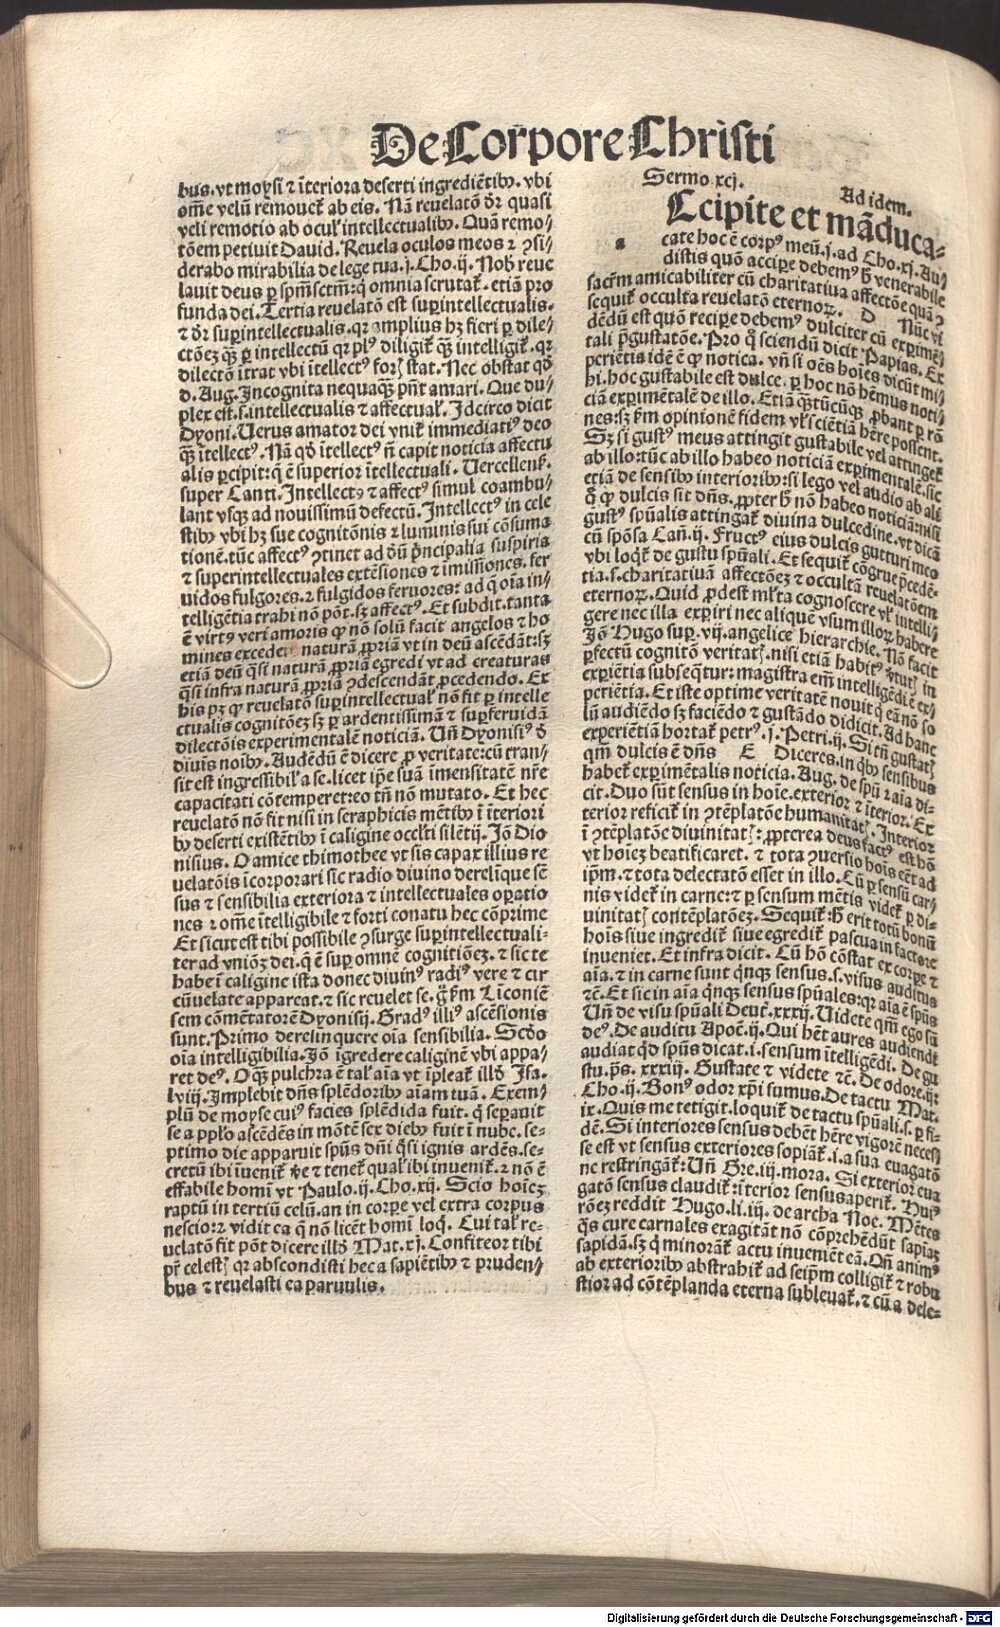 De Corpore Christi
bus. vt moysi ⁊ īteriora deserti ingrediētibꝰ. vbi
om̄e velū remouet᷑ ab eis. Nā reuelatō dr̄ quasi
veli remotio ab ocul᷑ intellectualibꝰ. Quā remo⸗
tōem petiuit Dauid. Reuela oculos meos ⁊ ꝯsi⸗
derabo mirabilia de lege tua. j. Cho. ij. Nob᷑ reue
lauit deus ꝑ spm̄ sctm̄: qꝛ omnia scrutat᷑. etiā pro
funda dei. Tertia reuelatō est suꝑintellectualis.
⁊ dr̄ suꝑintellectualis. qꝛ amplius hꝫ fieri ꝑ dile⸗
ctōeꝫ qꝫ̄ ꝑ intellectū qꝛ plꝰ diligit᷑ qꝫ̄ intelligit᷑. qꝛ
dilectō itrat vbi ītellectꝰ forꝭ stat. Nec obstat qd̄
d. Aug. Incognita nequaqꝫ̄ pn̄t amari. Que du⸗
plex est. s. intellectualis ⁊ affectual᷑. Idcirco dicit
Dyoni. Uerus amator dei vnit᷑ immediatiꝰ deo
qꝫ̄ ītellectꝰ. Nā qd̄ ītellectꝰ nō capit noticia affectu
alis ꝑcipit: q̄ ē superior ītellectuali. Uercellen᷑.
super Canti. Intellectꝰ ⁊ affectꝰ simul coambu⸗
lant vsqꝫ ad nouissimū defectū. Intellectꝰ in cele
stibꝰ vbi hꝫ sue cognitōnis ⁊ luminis sui cōsuma
tionē. tūc affectꝰ ꝯtinet ad dū p̄ncipalia suspiria
⁊ superintellectuales extēsiones ⁊ īmissiones. fer
uidos fulgores. ⁊ fulgidos feruores: ad q̄ oīa in⸗
telligētia trahi nō pōt. sꝫ affectꝰ. Et subdit. tanta
ē virtꝰ veri amoris ꝙ nō solū facit angelos ⁊ ho
mines excede naturā ꝓpriā vt in deū ascēdāt: sꝫ
etiā deū q̄si naturā ꝓpriā egredi vt ad creaturas
q̄si infra naturā ꝓpriā ꝯdescendāt ꝓcedendo. Ex
his pꝫ ꝙ reuelatō suꝑintellectual᷑ nō fit ꝑ intelle
ctualis cognitōeꝫ sꝫ ꝑ ardentissimā ⁊ suꝑferuidā
dilectōis experimentalē noticiā. Un̄ Dyonisiꝰ d̄
diuis noībꝰ. Audēdū ē dicere ꝓ veritate: cū tran⸗
sit est ingressibil᷑ a se. licet ip̄e suā īmensitatē nr̄e
capacitati cōtemperet: eo tn̄ nō mutato. Et hec
reuelatō nō fit nisi in seraphicis mētibꝰ ī īteriori
bꝰ deserti existētibꝰ ī caligine occlti silētij. Iō Dio
nisius. O amice thimothee vt sis capax illius re
uelatōis īcorporari sic radio diuino derelīque sē
sus ⁊ sensibilia exteriora ⁊ intellectuales oꝑatio
nes ⁊ om̄e ītelligibile ⁊ forti conatu hec cōprime
Et sicut est tibi possibile ꝯsurge suꝑintellectuali⸗
ter ad vniōꝫ dei. q̄ ē suꝑ omnē cognitiōeꝫ. ⁊ sic te
habe ī caligine ista donec diuinꝰ radiꝰ vere ⁊ cir
cūuelate appareat. ⁊ sic reuelet se. q̄ fm̄ Līconiē
sem cōmētatorē Dyonisij. Gradꝰ illiꝰ ascēsionis
sunt. Primo derelinquere oīa sensibilia. Scd̄o
oīa intelligibilia. Iō īgredere caliginē vbi appa⸗
ret deꝰ. O qꝫ̄ pulchra ē tal᷑ aīa vt īpleat᷑ illd̄ Isa.
lviij. Implebit dn̄s splēdoribꝰ aīam tuā. Exem⸗
plū de moyse cuiꝰ facies splēdida fuit. q̄ seꝑauit
se a pplo ascēdēs in mōtē sex diebꝰ fuit ī nube. se⸗
ptimo die apparuit spūs dn̄i q̄si ignis ardēs. se⸗
cretū ibi īuenit᷑ de ⁊ tenet᷑ qual᷑ ibi inuenit᷑. ⁊ nō ē
effabile homī vt Paulo. ij. Cho. xij. Scio hoīeꝫ
raptū in tertiū celū. an in corꝑe vel extra corpus
nescio: ⁊ vidit ea q̄ nō licēt homī loq̄. Cui tal᷑ re⸗
uelatō fit pōt dicere illd̄ Mat. xj. Confiteor tibi
pr̄ celestꝭ qꝛ abscondisti hec a sapiētibꝰ ⁊ pruden⸗
bus ⁊ reuelasti ea paruulis.
Sermo xcj.
Ad idem.
Ccipite et māduca⸗
a
cate hoc ē corpꝰ meū. j. ad Cho. xj. Au⸗
distis quō accipe debemꝰ h̄ venerabile
sacrm̄ amicabiliter cū charitatiua affectōe quā ꝯ
sequit᷑ occulta reuelatō eternoꝝ. D Nūc vi
dēdū est quō recipe debemꝰ dulciter cū experimē⸗
tali p̄gustatōe. Pro q̄ sciendū dicit Papias. Ex
periētis idē ē ꝙ notica. vn̄ si oēs hoīes dicūt mi⸗
hi. hoc gustabile est dulce. ꝑ hoc nō hēmus noti⸗
ciā experimētalē de illo. Etiā qꝫ̄tūcūqꝫ ꝓbant ꝑ rō
nes: sꝫ fm̄ opinionē fidem vl᷑ sciētiā hēre possent.
Sꝫ si gustꝰ meus attingit gustabile vel attinget᷑
ab illo: tūc ab illo habeo noticiā exꝑimentalē. sic
etiā de sensibꝰ interioribꝰ: si lego vel audio ab ali
q̄ ꝙ dulcis sit dn̄s. ꝓpter h̄ nō habeo noticiā: nisi
gustꝰ spūalis attingat᷑ diuina dulcedine. vt dicā
cū spōsa Can̄. ij. Fructꝰ eius dulcis gutturi meo
vbi loqt᷑ de gustu spūali. Et sequit᷑ cōgrue p̄cedē⸗
tia. s. charitatiuā affectōeꝫ ⁊ occultā reuelatōem
eternoꝝ. Quid ꝓdest ml᷑ta cognoscere vl᷑ intelli⸗
gere nec illa exꝑiri nec aliquē vsum illoꝝ habere
Iō Hugo suꝑ. vij. angelice hierarchie. Nō facit
ꝑfectū cognitō veritatꝭ. nisi etiā habitꝰ v̄tutꝭ in
exꝑiētia subseqtur: magistra em̄ intelligēdi ē ex⸗
periētia. Et iste optime veritatē nouit q̄ eā nō so
lū audiēdo sꝫ faciēdo ⁊ gustādo didicit. Ad hanc
exꝑiētiā hortat᷑ petrꝰ. j. Petri. ij. Si tn̄ gustatꝭ
qm̄ dulcis ē dn̄s E Diceres. in qbꝰ sensibus
habet᷑ exꝑimētalis noticia. Aug. de spū ⁊ aīa di⸗
cit. Duo sūt sensus in hoīe. exterior ⁊ īterior. Ex
terior reficit᷑ in ꝯtēplatōe humanitatꝭ. Interior
ī ꝯtēplatōe diuinitatꝭ: ꝓpterea deus factꝰ est hō
vt hoīeꝫ beatificaret. ⁊ tota ꝯuersio hoīs eēt ad
ipm̄. ⁊ tota delectatō esset in illo. Cū ꝑ sensū car⸗
nis videt᷑ in carne: ⁊ ꝑ sensum mētis videt᷑ ꝑ di⸗
uinitatꝭ contēplatōeꝫ. Sequit᷑: h̄ erit totū bonū
hoīs siue ingredit᷑ siue egredit᷑ pascua in factore
inueniet. Et infra dicit. Cū hō cōstat ex corꝑe ⁊
aīa. ⁊ in carne sunt qnqꝫ sensus. s. visus auditus
⁊c̄. Et sic in aīa qnqꝫ sensus spūales: qꝛ aīa ē spūs
Un̄ de visu spūali Deut᷑. xxxij. Uidete qm̄ ego sū
deꝰ. De auditu Apoc̄. ij. Qui hēt aures audiendi
audiat qd̄ spūs dicat. i. sensum ītelligēdi. De gu
stu. ps. xxxiij. Gustate ⁊ videte ⁊c̄. De odore. ij:
Cho. ij. Bonꝰ odor xp̄i sumus. De tactu Mat.
ix. Quis me tetigit. loquit᷑ de tactu spūali. s. ꝑ fi⸗
dē. Si interiores sensus debēt hēre vigorē necesꝫ
se est vt sensus exteriores sopiāt᷑. i. a sua euagatō
ne restringāt᷑: Un̄ Gre. iij. mora. Si exterior eua
gatō sensus claudit᷑: īterior sensus aperit᷑. Huiꝰ
rōeꝫ reddit Hugo. li. iij. de archa Noe. Mētes
q̄s cure carnales exagitāt nō cōprehēdūt sapiaꝫ
sapidā. sꝫ q̄ minorāt᷑ actu inueniēt eā. Qn̄ animꝰ
ab exterioribꝰ abstrahit᷑ ad seipm̄ colligit᷑ ⁊ robu
stior ad cōtēplanda eterna subleuat᷑. ⁊ cū a dele⸗
Digitalisierung gefördert durch die Deutsche Forschungsgemeinschaft - DFG